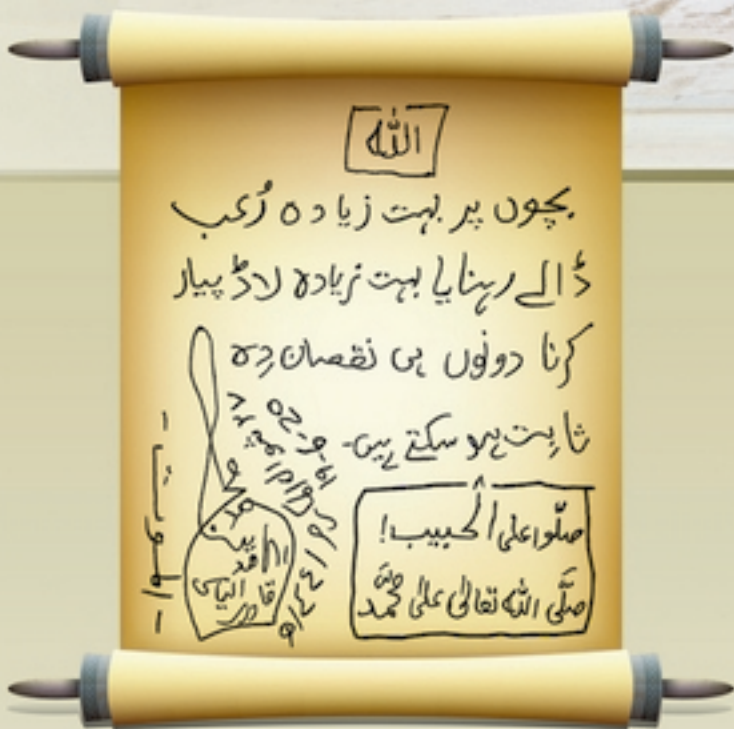 اللہ
بچوں پر بہت زیادہ رُعب
ڈالے رہنا یا بہت زیادہ لاڈ پیار
کرنا دونوں ہی نقصان دِہ
ثابت ہو سکتے ہیں۔
صلّوا علی الحبیب!
صلَّی اللہ تعالیٰ علیٰ محمّد
الموت